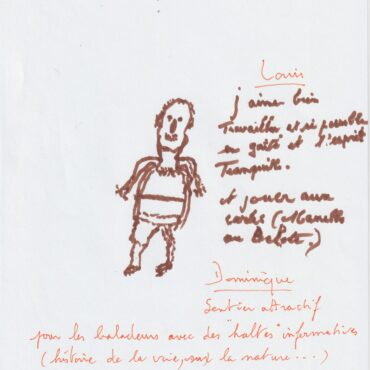 Louis
j'aime bien
Travailler et si possible
en gaité et l'esprit
Tranquille.
et jouer aux
cartes (Manille
ou Belote.)
Dominique
Sentier attractif
pour les baladeurs avec des "haltes" informatives
(histoire de la vie, sur la nature...)